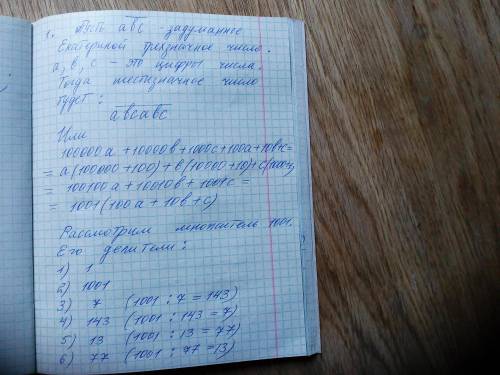 1. Пусть авс - задуманное
Екатериной трехзначное число.
а, в, с - это цифры числа.
Тогда шестизначное число
будет:
авсавс
Или
100000а + 10000в + 1000с + 100а + 10в + с =
= а(100000 + 100) + в(10000 + 10) + с(1000+1)
= 100100а + 10010в + 1001с =
= 1001(100а + 10в + с)
Рассмотрим множитель 1001.
Его делители:
1) 1
2) 1001
3) 7 (1001 : 7 = 143)
4) 143 (1001 : 143 = 7)
5) 13 (1001 : 13 = 77)
6) 77 (1001 : 77 = 13)